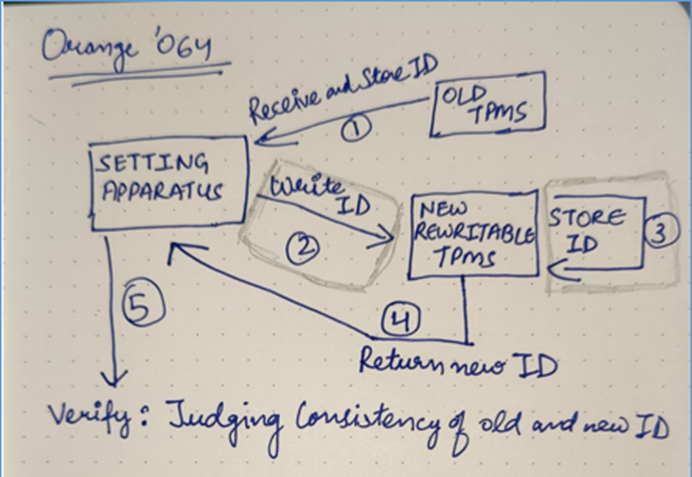 Orange '064
Receive and Store ID
①
OLD
TPMS
SETTING
APPARATUS
Write
ID
②
NEW
REWRITABLE
TPMS
STORE
ID
③
⑤
④
Return new ID
Verify: Judging Consistency of old and new ID